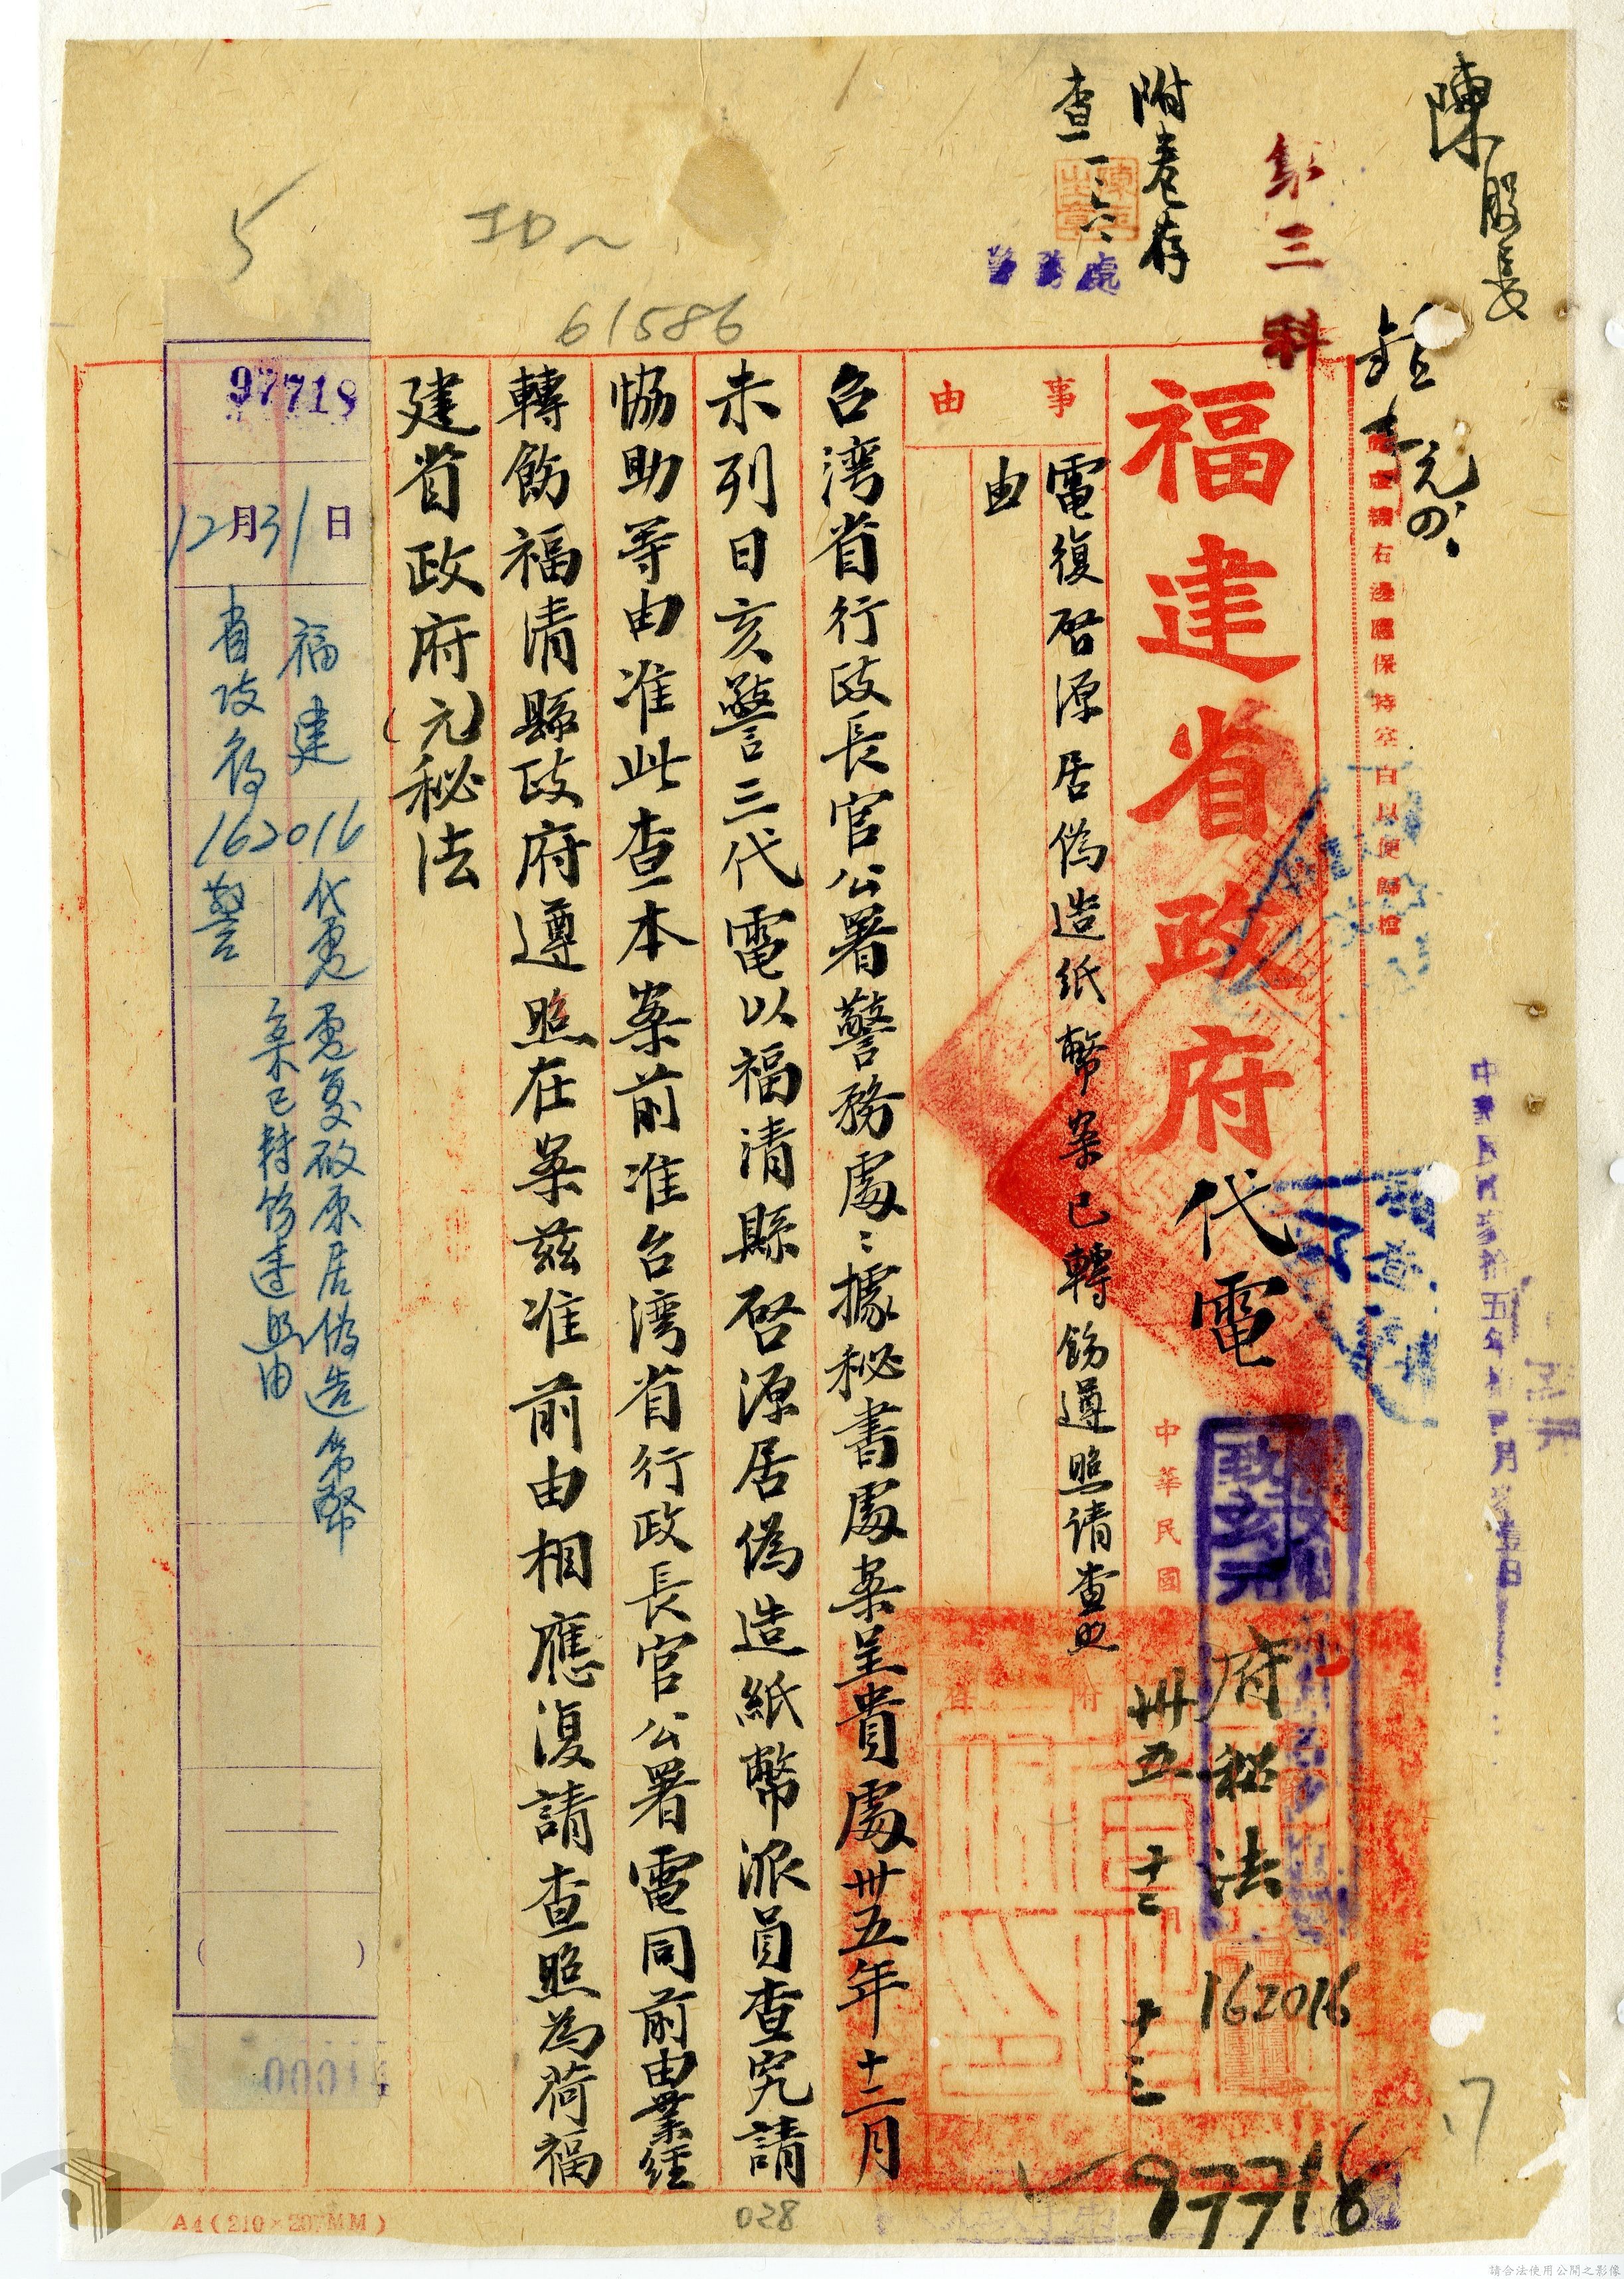 陳股長
鍾元
附卷存
查
一、六、
警務處
第三科
5
ID~
61586
右邊應保持空白以便歸檔
福建省政府代電
中華民國
府秘法
162016
卅五 十二 十三
97718
事由
電復啓源居偽造紙幣案已轉飭遵照請查照
由
台灣省行政長官公署警務處：據秘書處案呈貴處卅五年十一月
未列日亥警三代電以福清縣啓源居偽造紙幣派員查究請
協助等由准此查本案前准台灣省行政長官公署電同前由業經
轉飭福清縣政府遵照在案茲准前由相應復請查照為荷福
建省政府(元)秘法
97718
12月31日
福建
省政府
162016
代電
警
電复啟原居偽造紙幣
案已轉飭遵照由
038
A4(210×297MM)
請合法使用公開之影像